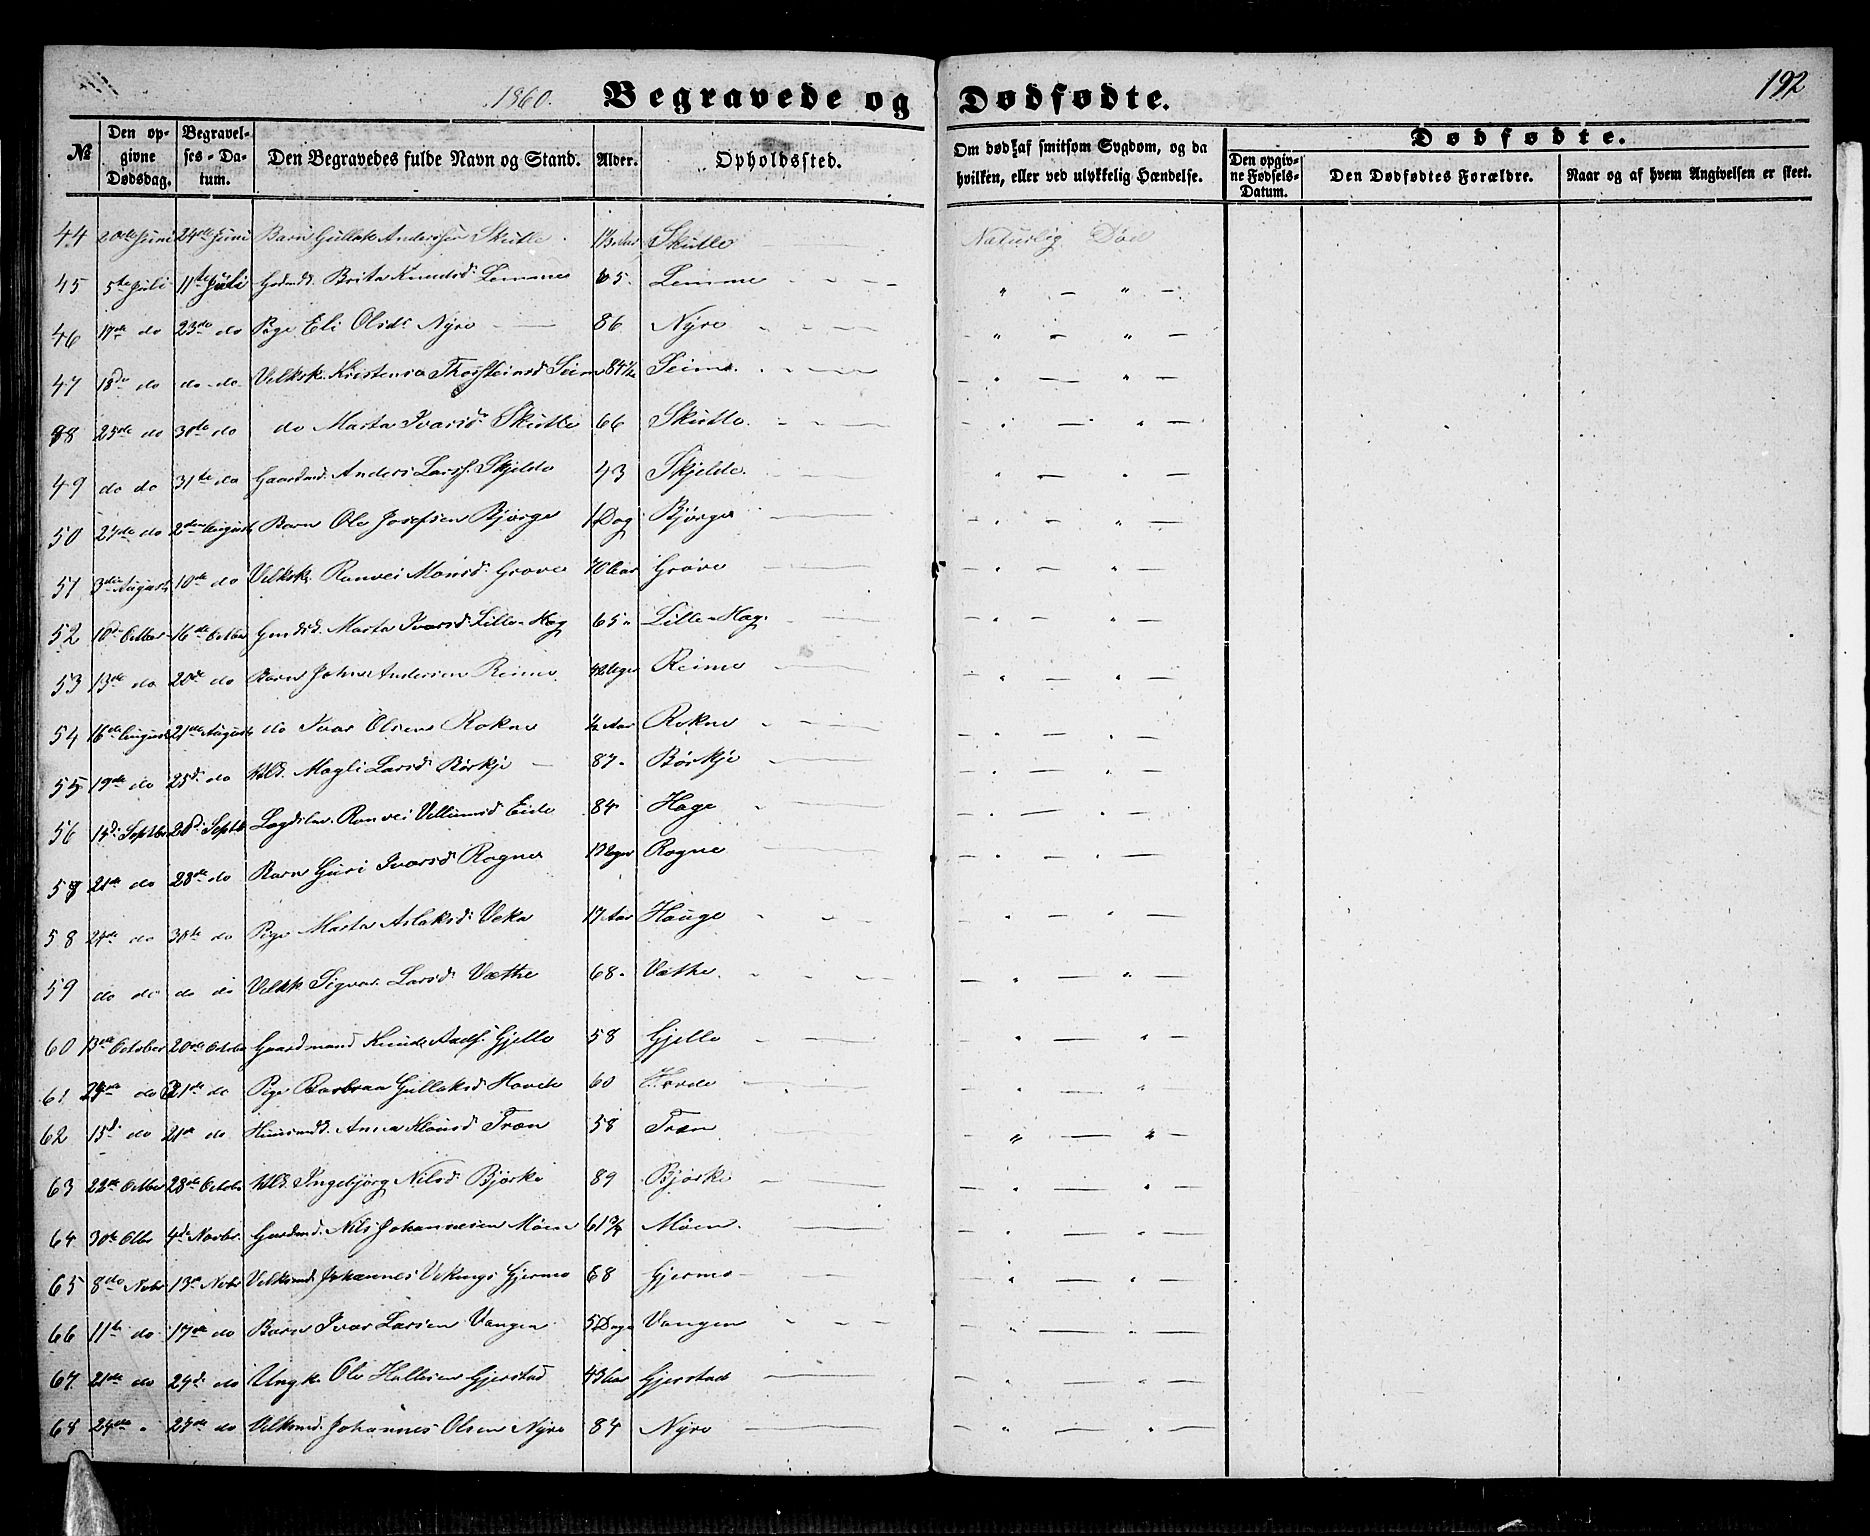 1860. Begravede og Dødfødte. 192
№ Den opgivne Dødsdag. Begravelses-Datum. Den Begravedes fulde Navn og Stand. Alder. Opholdssted. Om død af smitsom Sygdom, og da hvilken, eller ved ulykkelig Hændelse. Dødfødte. Den opgivne Fødsels-Datum. Den Dødfødtes Forældre. Naar og af hvem Angivelsen er skeet.
44 20de Juni 24de Juni Barn Gullak Anderssen Skutle Skutle Naturlig Død
45 5te Juli 11te Juli Brita Knudsd. Lemme 65. Lemme " "
46 17de do 23de do Pige Eli Olsd. Nyre 86 Nyre " "
47 18de do do do Velksk. Kristense Thorsteinsd Seim Seime. " "
48 25de do 30te do do Marta Ivarsd. Skutle 66 Skutle. " "
49 do do 31te do Gaardmd. Anders Larss. Skjelde 43 Skjelde. " "
50 27de do 2den August Barn Ole Josefsen Bjørge 1 Dag Bjørge " "
51 3die August 10de do Velksk. Ranvei Monsd. Grove 70 Aar Grove " "
52 10de Octbr 16de Octbr Marta Ivarsd. Lille-Hag 65 Lille-Hag. " "
53 13de do 20de do Barn Johns Andersen Reime Reime " "
54 16de August 21de August do Ivar Olsen Rokne ½ Aar Rokne " "
55 19de do 25d. do Magli Larsd. Børkje 87. Børkje " "
56 14d. Septbr 20d. Septb Ranvei Villumsd Eide 84. Hage " "
57 21de do 28de do Barn Guri Ivarsd. Rogne Rogne " "
58 24de do 30te do Pige Marta Aslaksd. Veka 17 Aar Hauge " "
59 do do do do Velksk Sigvor Larsd. Væthe 68. Væthe. " "
60 13de October 20de Octbr Gaardmand Knud Gjelle 58 Gjelle " "
61 do 21de do Pige Barbraa Gullaksd. Hovde 60 Hovde " "
62 15d. do 21de do Huusmdk. Anna Monsd. Træn 58 Træn " "
63 22de Octbr 28de Octobr Ingebjørg Nilsd. Bjørke 89 Bjørke " "
64 30de Olbr 4de Novbr. Gardmd. Nils Johannesen Møen 61¾ Møen. " "
65 8de Nvbr 13de Nvbr Velksmd. Johannes Vikings. Gjerme 68 Gjerme " "
66 11te do 17de do Barn Ivar Larsen Vangen 5 Dage Vangen " "
67. 21de do 27d. do Ungk. Ole Hallesen Gjerstad 43 Aar Gjerstad " "
68 24de " 27de do Velksmd. Johannes Olsen Nyre 84 Nyre " "